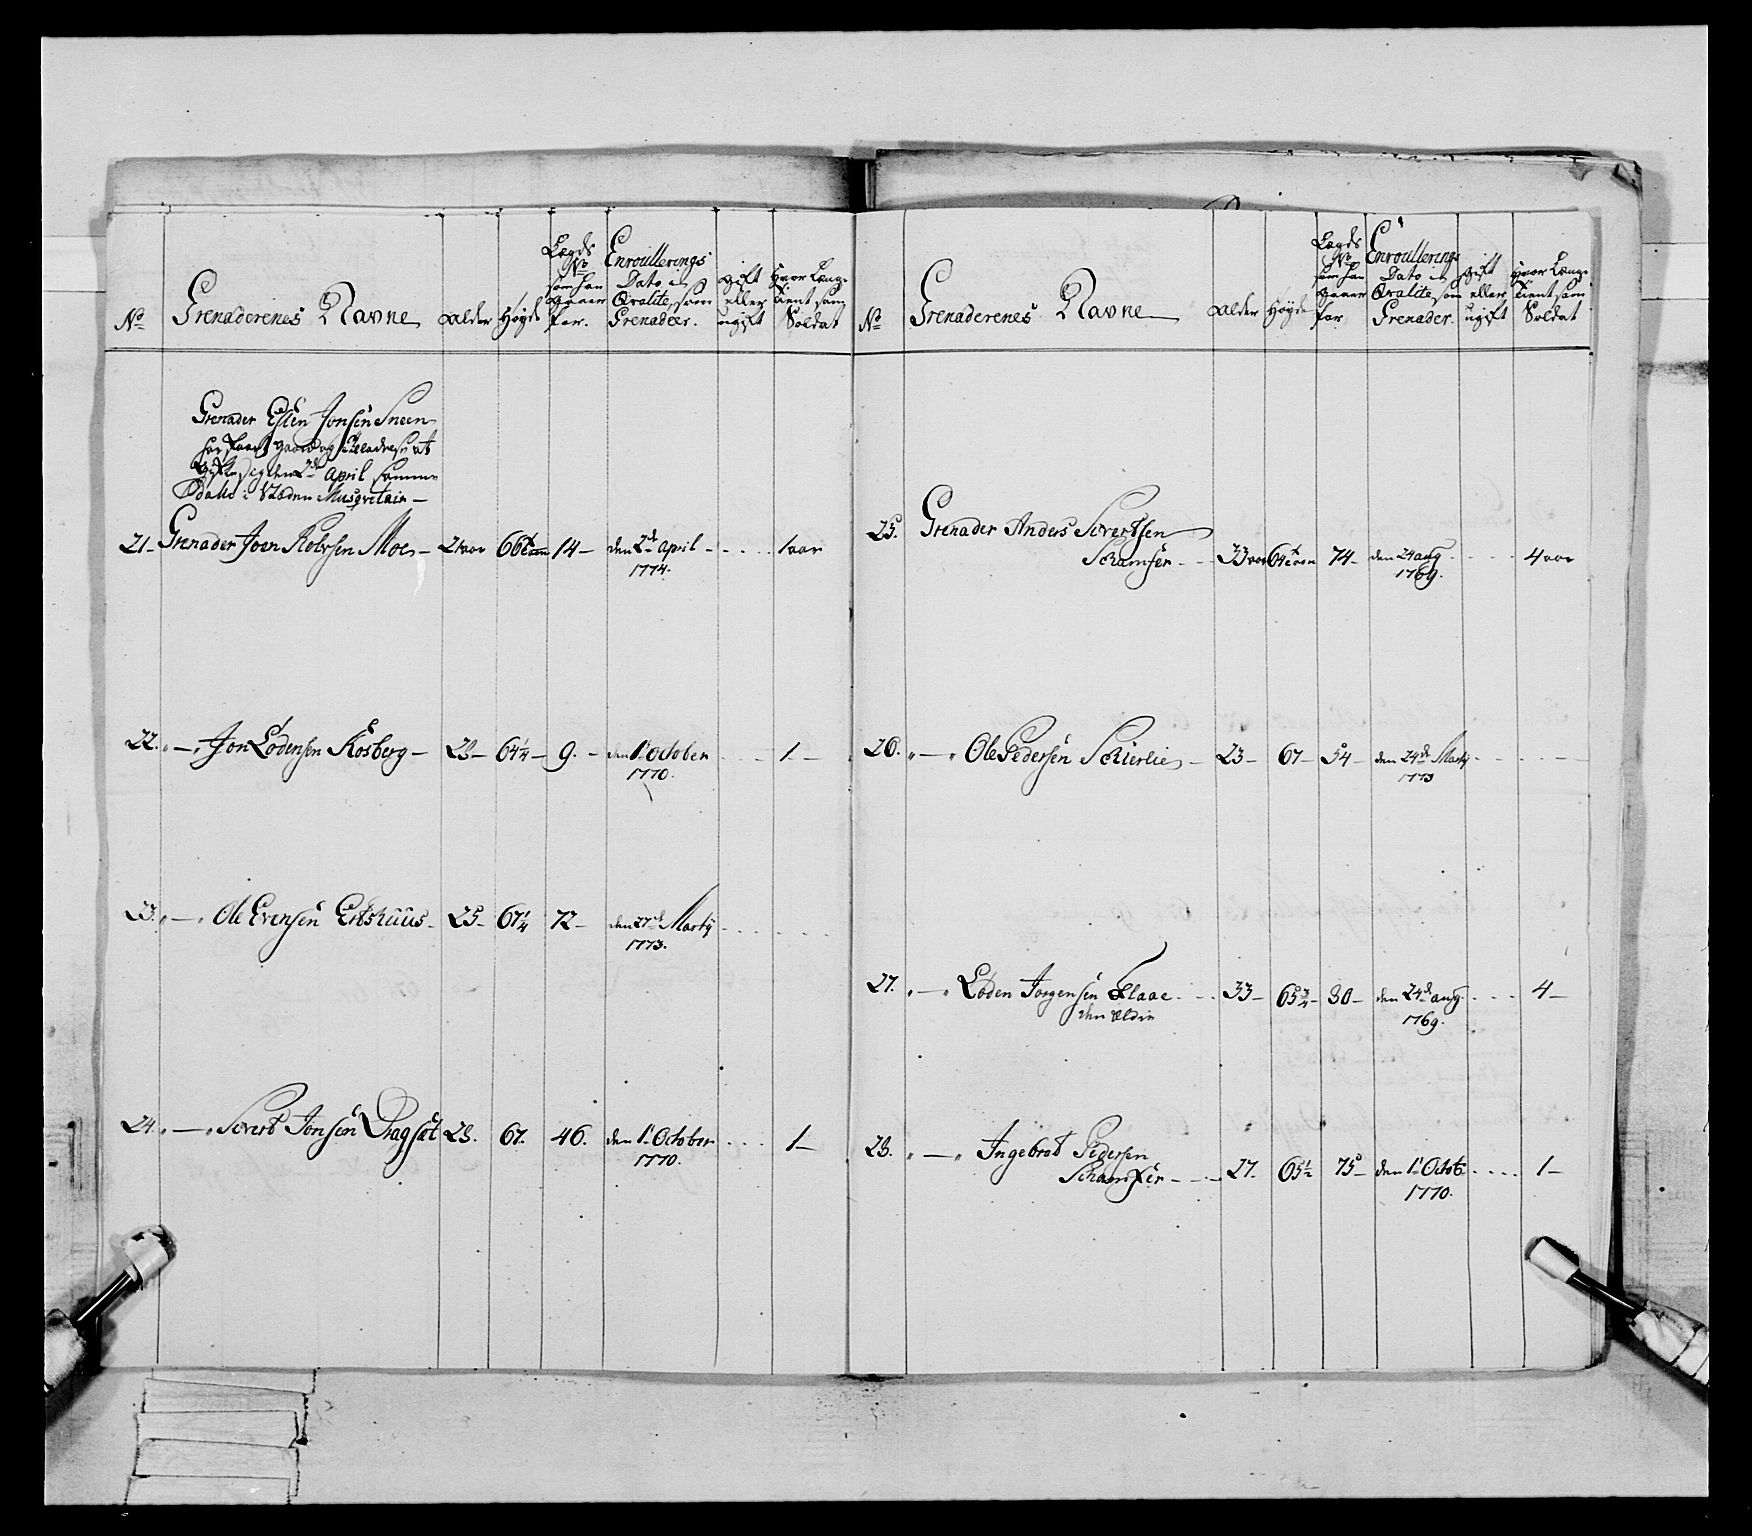 No
Grenaderenes Navne
Alder
Høyde
Lægds
No
som han
staaer
for.
Enroullerings
Dato i
Qvalite som
Grenadeer.
gift
eller
ugift
hvor Længe
tient som
Soldat
Grenader Esten Jonsen Sneen
gifte sig den 2de April samme
Dato i Steden Musqvetair —
21 — Grenader Joen Rolvsen Moe — 21 aar 66 14 — den 2de April 1 aar
1774.
22. — Jon Lodensen Kosberg — 28 — 64 1/4 — 9. — den 1t October 1 —
1770.
23. — Ole Evensen Ertshuus — 25 — 67 1/4 72 — den 27de Martij
1773.
24. — Sivert Jonsen Dragset 28. 67. 46. den 1t October 1 —
1770.
No
Grenaderenes Navne
Alder
Høyde
Lægds
No
som han
staaer
for
Enroullerings
Dato i
Qvalite som
Grenader.
gift
eller
ugift
hvor Længe
tient som
Soldat
25. Grenader Anders Sivertsen
Schamfer 33 aar 64 74 — den 24 aug 4 aar
1769.
26. — Ole Pedersen Schierlie — 23 — 67 — 54 — den 24de Martij
1773
27. — Loden Jorgensen Flaae 33 — 65 3/4 — 80 — den 24de aug. 4 —
den Eldre 1769.
28. — Ingebret Pedersen
Schamfer — 27. 65 1/2 75 — den 1t Octob: 1 —
1770.